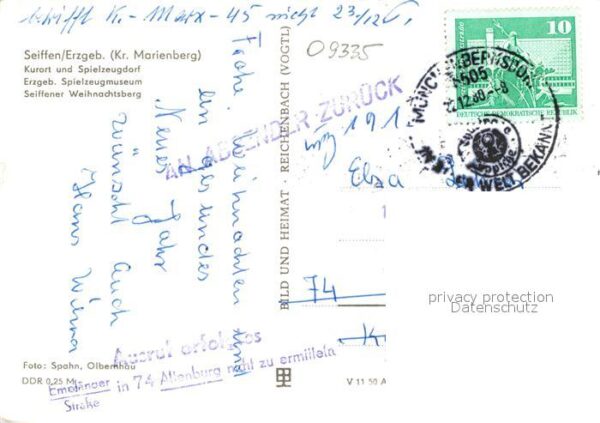 betrifft K.-Marx-45 nicht 23/12
Seiffen/Erzgeb. (Kr. Marienberg)
Kurort und Spielzeugdorf
Erzgeb. Spielzeugmuseum
Seiffener Weihnachtsberg
Frohe Weihnachten und
ein gesundes
Neues Jahr
wünscht Euch
Hans
Foto: Spahn, Olbernhau
DDR 0,25 M
BILD UND HEIMAT · REICHENBACH (VOGTL)
V 11 50 A
09335
AN ABSENDER ZURÜCK
191
Elsa
74
Ausruf erfolglos
Empfänger in 74 Altenburg nicht zu ermitteln
Straße
10
DEUTSCHE DEMOKRATISCHE REPUBLIK
BERNSDORF
privacy protection
Datenschutz